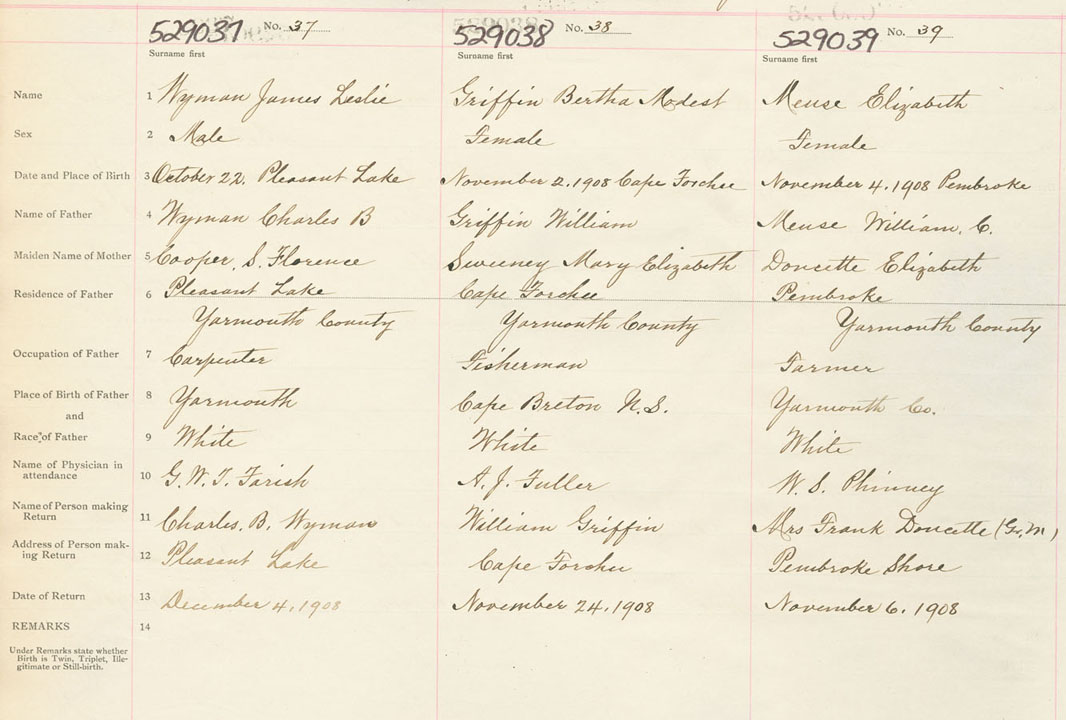 529037 No. 37 529038 No. 38 529039 No. 39
Surname first Surname first Surname first
Name 1 Wyman James Leslie Griffin Bertha Modest Meuse Elizabeth
Sex 2 Male Female Female
Date and Place of Birth 3 October 22. Pleasant Lake November 2, 1908 Cape Forchu November 4, 1908 Pembroke
Name of Father 4 Wyman Charles B Griffin William Meuse William. C.
Maiden Name of Mother 5 Cooper, S. Florence Sweeney Mary Elizabeth Doucette Elizabeth
Residence of Father 6 Pleasant Lake Cape Forchu Pembroke
Yarmouth County Yarmouth County Yarmouth County
Occupation of Father 7 Carpenter Fisherman Farmer
Place of Birth of Father 8 Yarmouth Cape Breton N.S. Yarmouth Co.
and
Race of Father 9 White White White
Name of Physician in
attendance 10 G. W. T. Farish A. J. Fuller W. S. Phinney
Name of Person making
Return 11 Charles. B. Wyman William Griffin Mrs Frank Doucette (G.M)
Address of Person mak-
ing Return 12 Pleasant Lake Cape Forchu Pembroke Shore
Date of Return 13 December 4, 1908 November 24, 1908 November 6, 1908
REMARKS 14
Under Remarks state whether
Birth is Twin, Triplet, Ille-
gitimate or Still-birth.